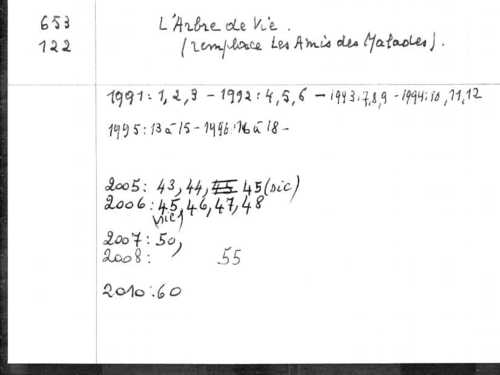 653 L'Arbre de Vie.
122 (remplace Les Amis des Malades).
1991: 1, 2, 3 - 1992: 4, 5, 6 - 1993: 7, 8, 9 - 1994: 10, 11, 12
1995: 13 à 15 - 1996: 16 à 18 -
2005: 43, 44, 45 45 (sic)
2006: 45, 46, 47, 48
(sic)
2007: 50,
2008: 55
2010: 60